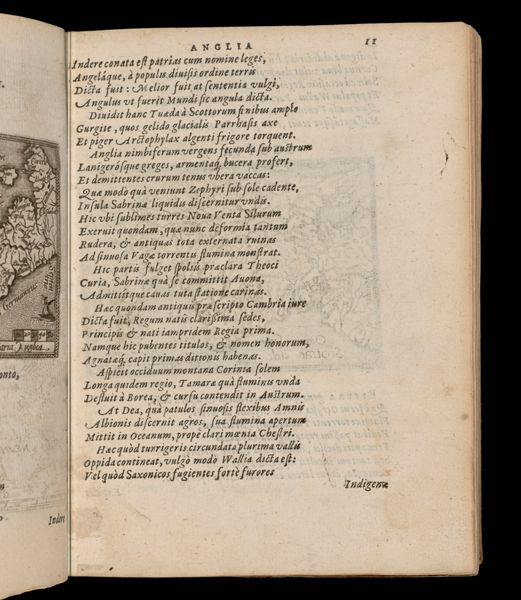 ANGLIA 11
Indere conata est patrias cum nomine leges,
Angeláque, à populis diuisi ordine terris
Dicta fuit: Melior fuit at sententia vulgi,
Angulus vt fuerit Mundi sic angula dicta.
Diuidit hanc Tuæda à Scottorum finibus amplo
Gurgite, quos gelido glacialis Parrhasis axe
Et piger Arctophylax algenti frigore torquent.
Anglia nimbiferum vergens fecunda sub austrum
Lanigerósque greges, armentaq; bucera profert,
Et demittentes crurum tenus vbera vaccas:
Quæ modo quà veniunt Zephyri sub sole cadente,
Insula Sabrinæ liquidis discernitur vndis.
Hic vbi sublimes turres Noua Venta Silurum
Exeruit quondam, quæ nunc deformia tantum
Rudera, & antiquas tota externata ruinas
Ad sinuosa Vagæ torrentis flumina monstrat.
Hic partis fulget spolijs præclara Theoci
Curia, Sabrinæ quà se committit Auona,
Admittitque cauas tuta statione carinas.
Hæc quondam antiqui præscripto Cambria iure
Dicta fuit, Regum natis clarissima sedes,
Principis & nati iampridem Regia prima.
Namque hic pubentes titulos, & nomen honorum,
Agnatæq; capit primas ditionis habenas.
Aspicit occiduum montana Corinia solem
Longa quidem regio, Tamaræ quà fluminis vnda
Defluit à Borea, & cursu contendit in Austrum.
At Dea, quà patulos sinuosis flexibus Amnis
Albionis discernit agros, sua flumina apertum
Mittit in Oceanum, propè clari mœnia Chestri.
Hæc quòd turrigeris circundata plurima vallis
Oppida contineat, vulgò modò Wallia dicta est:
Vel quòd Saxonicos fugientes fortè furores
Indigenæ
onto,
Indere